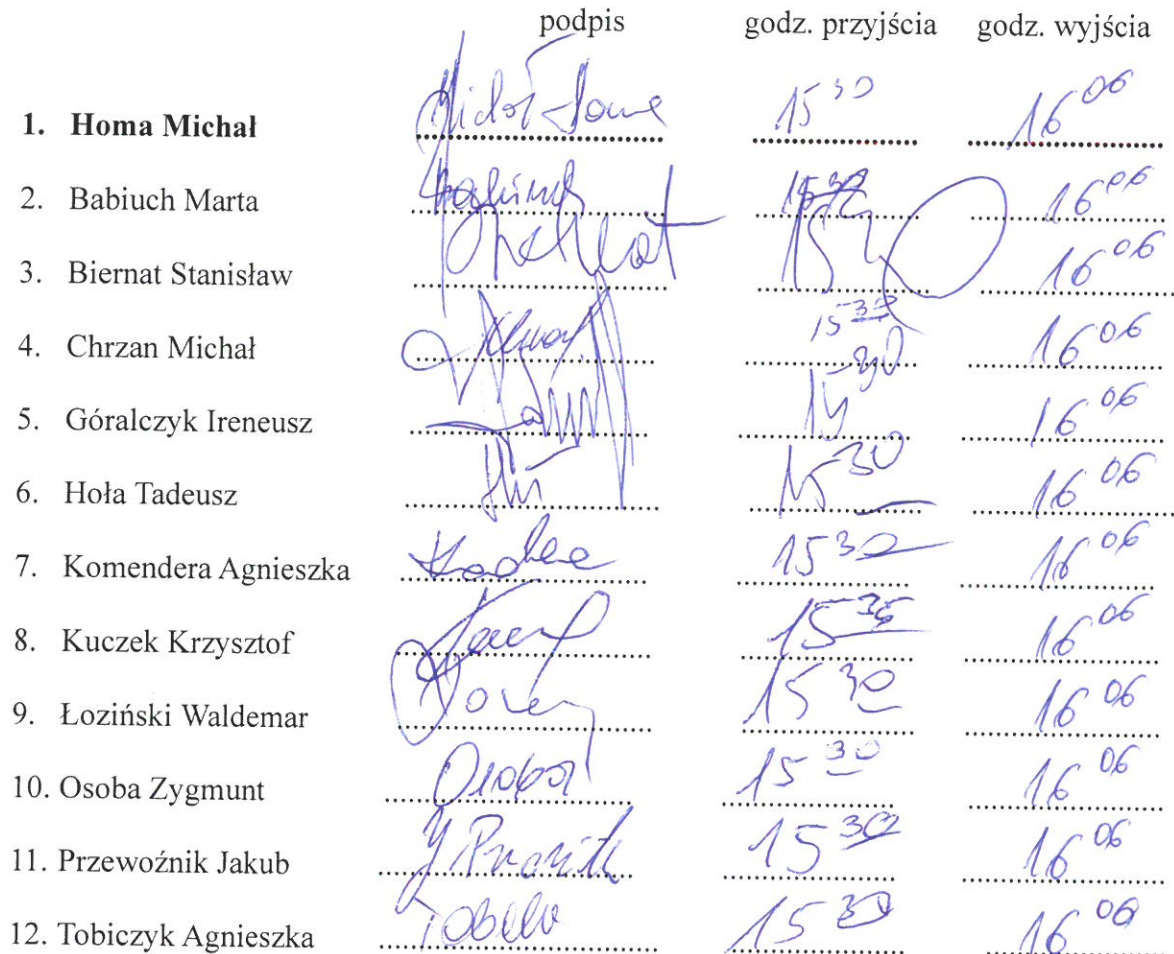 podpis godz. przyjścia godz. wyjścia
1. Homa Michał 15 30 16 06
2. Babiuch Marta 15 30 16 06
3. Biernat Stanisław 16 06
4. Chrzan Michał 15 30 16 06
5. Góralczyk Ireneusz 15 30 16 06
6. Hoła Tadeusz 15 30 16 06
7. Komendera Agnieszka 15 30 16 06
8. Kuczek Krzysztof 15 35 16 06
9. Łoziński Waldemar 15 30 16 06
10. Osoba Zygmunt Osoba 15 30 16 06
11. Przewoźnik Jakub 15 30 16 06
12. Tobiczyk Agnieszka 15 30 16 06